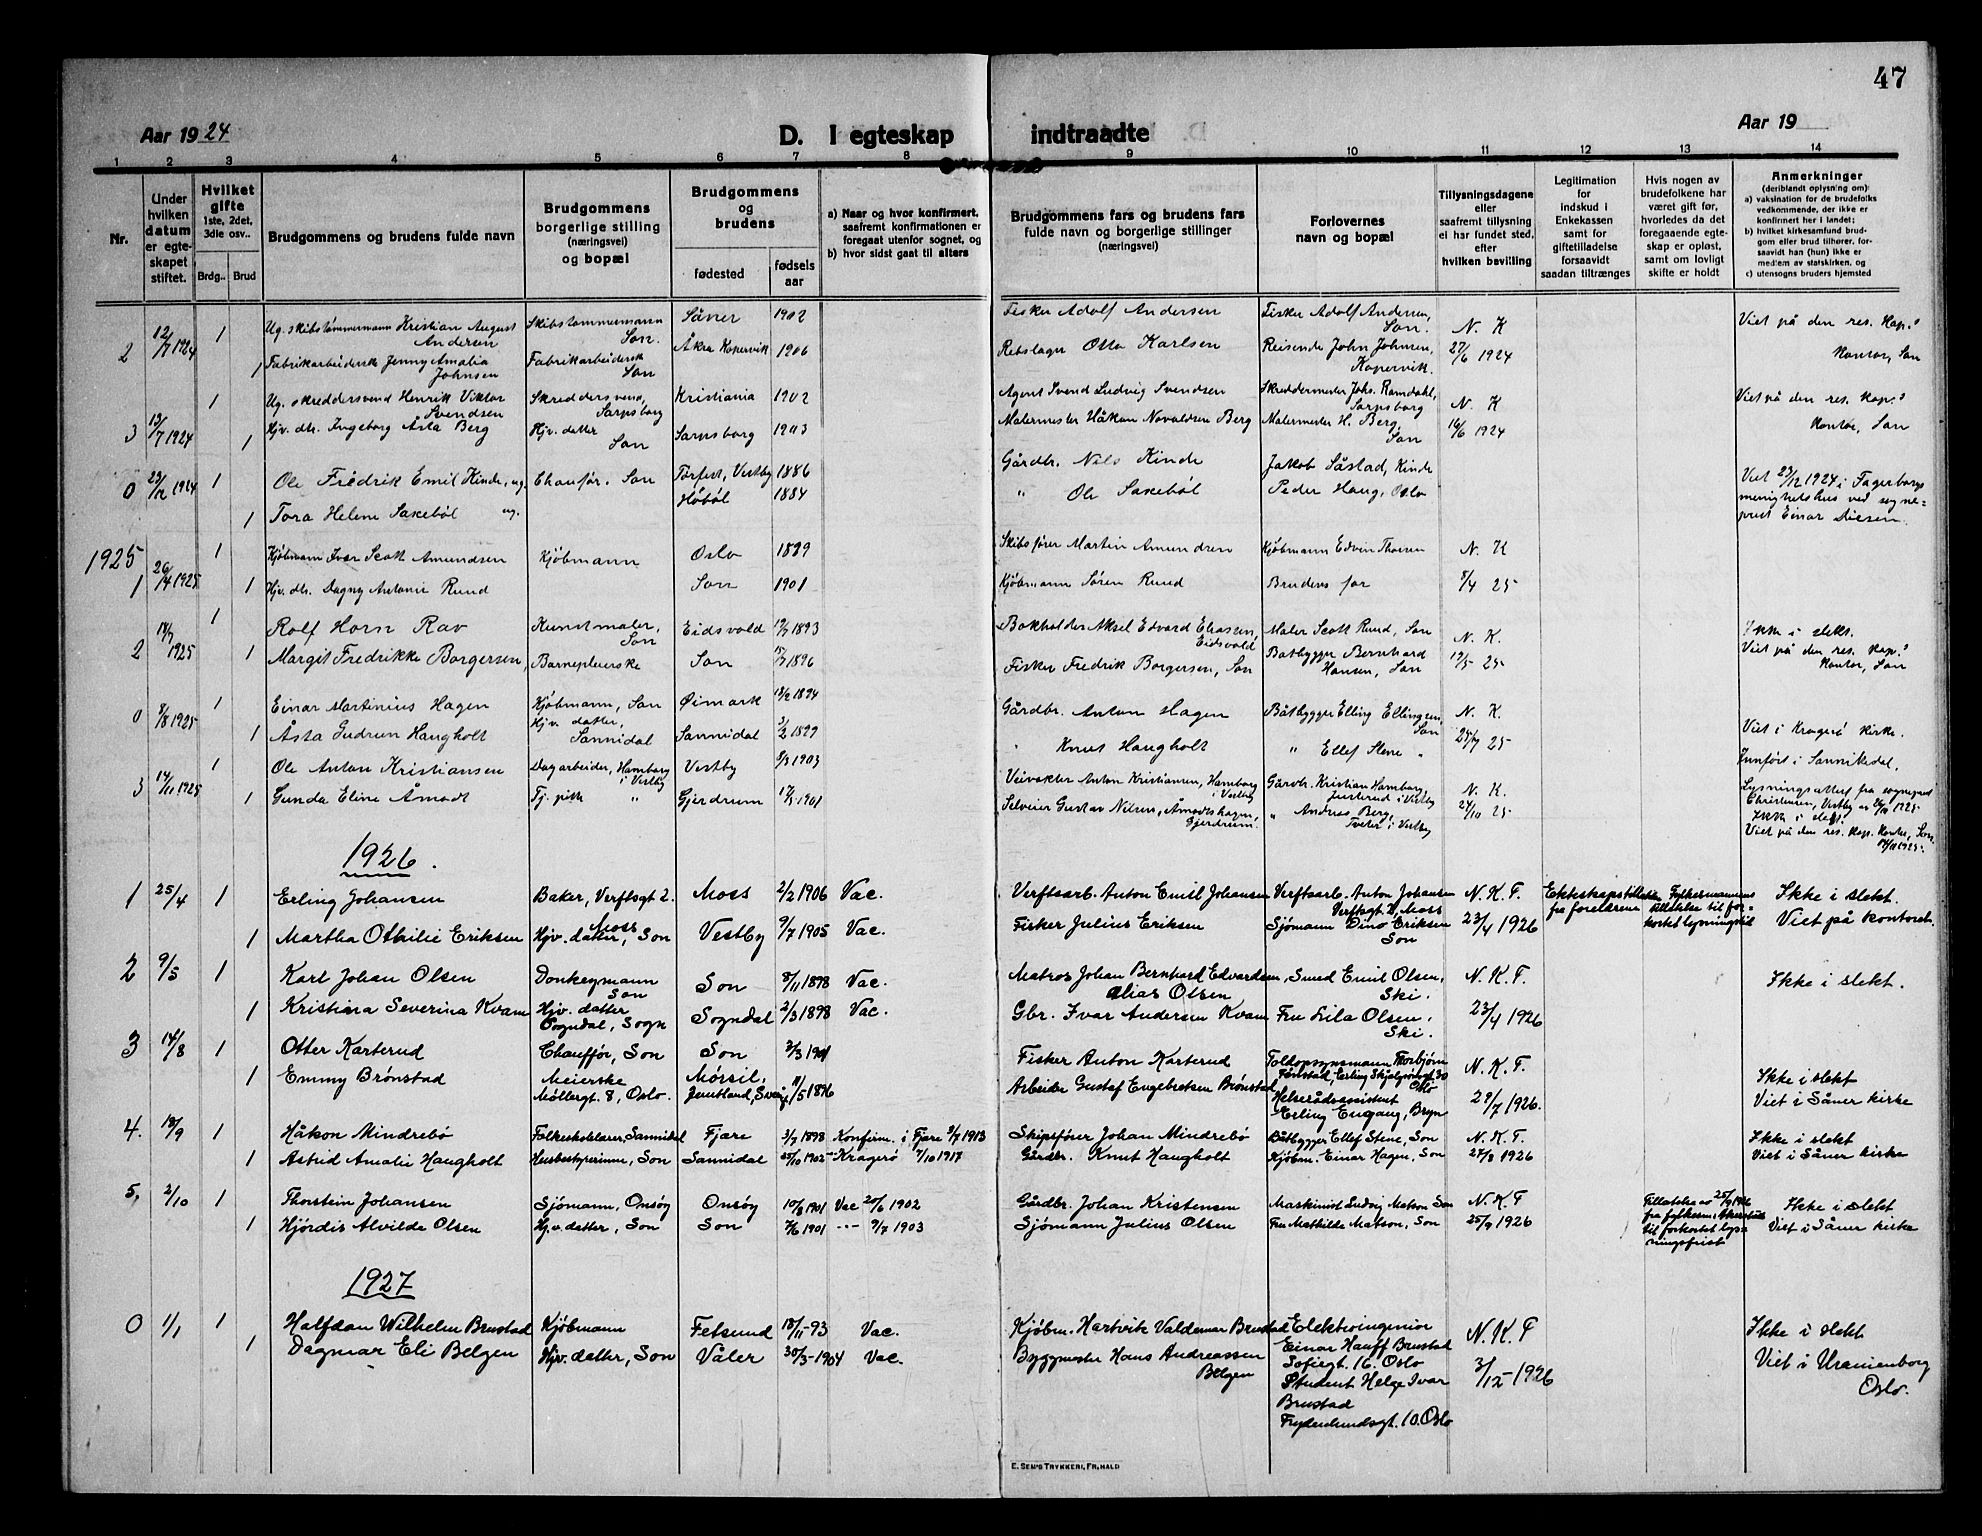 47
Aar 1924
D. I egteskap indtraadte
Aar 19
1 2 3 4 5 6 7 8 9 10 11 12 13 14
Nr.
Under hvilken datum er egte-skapet stiftet.
Hvilket gifte
1ste, 2det, 3die osv..
Brdg.. Brud
Brudgommens og brudens fulde navn
Brudgommens borgerlige stilling (næringsvei) og bopæl
Brudgommens og brudens
fødested
fødsels aar
a) Naar og hvor konfirmert, saafremt konfirmationen er foregaat utenfor sognet, og
b) hvor sidst gaat til alters
Brudgommens fars og brudens fars fulde navn og borgerlige stillinger (næringsvei)
Forlovernes navn og bopæl
Tillysningsdagene eller saafremt tillysning ei har fundet sted, efter hvilken bevilling
Legitimation for indskud i Enkekassen samt for giftetilladelse forsaavidt saadan tiltrænges
Hvis nogen av brudefolkene har været gift før, hvorledes da det foregaaende egte-skap er opløst, samt om lovligt skifte er holdt
Anmerkninger
(deriblandt oplysning om)
a) vaksination for de brudefolks vedkommende, der ikke er konfirmert her i landet;
b) hvilket kirkesamfund brud-gom eller brud tilhører, for-saavidt han (hun) ikke er medlem av statskirken, og
c) utensogns bruders hjemsted
2 12/7 1924 1 Ug. skibstømmermann Kristian August Andersen Skibstømmermann Son. Såner 1902 Fisker Adolf Andersen Fisker Adolf Andersen, Son. N. K Viet på den res. Kap.s
1 Fabrikarbeidersk Jenny Amalia Johnsen Fabrikarbeidersk Son Åkra Kopervik 1906 Rebslager Otto Karlsen Reisende John Johnsen, Kopervik. 27/6 1924 Kontor, Son
3 13/7 1924 1 Ug. skreddersvend Henrik Viktor Svendsen Skreddersvend, Sarpsborg Kristiania 1902 Agent Svend Ludvig Svendsen Skreddermester Johs. Ramdahl, Sarpsborg N. K Viet på den res. Kap.s
1 Hjv. dtr. Ingeborg Åsta Berg Hjv. datter Son Sarpsborg 1903 Malermester Håkon Novaldsen Berg Malermester H. Berg, Son 16/6 1924 Kontor, Son
0 23/12 1924 1 Ole Fredrik Emil Kinde, ug. Chaufør. Son Torfest, Vestby 1886 Gårdbr. Nils Kinde Jakob Såstad, Kinde Viet 23/12 1924 i Fagerborgs
1 Tora Helene Sakebøl ug. Håbøl 1884 " Ole Sakebøl Peder Haug, Oslo menighetshus ved sogne=
prest Einar Diesen.
1925
1 26/4 1925 1 Kjøbmann Ivar Scott Amundsen Kjøbmann Oslo 1899 Skibsfører Martin Amundsen Kjøbmann Edvin Thorsen N. K
1 Hjv. dtr. Dagny Antonie Rund Son 1901 Kjøbmann Søren Rund Brudens far 8/4 25
2 18/7 1925 1 Rolf Horn Rav Kunstmaler, Son Eidsvold 1893 Bokholder Aksel Edvard Eliasen, Eidsvold Maler Scott Rund, Son N. K. Ikke i slekt.
1 Margit Fredrikke Borgersen, Barnepleierske Son 1896 Fisker Fredrik Borgersen, Son Båtbygger Bernhard Hansen, Son 19/5 25 Viet på den res. Kap.s Kontor, Son
0 8/8 1925 1 Einar Martinius Hagen Kjøbmann, Son Øimark 1894 Gårdbr. Anton Hagen Båtbygger Elling Ellingsen, Son N. K.
1 Åsta Gudrun Haugholt Hjv. datter, Sannidal Sannidal 3/2 1899 " Knut Haugholt " Ellef Stene " 25/7 25 Viet i Kragerø kirke.
3 14/11 1925 1 Ole Anton Kristiansen Dagarbeider, Hamborg i Vestby Vestby 9/3 1903 Veivokter Anton Kristiansen, Hamborg i Vestby Gårdbr. Kristian Hamborg, i Vestby N. K. Innført i Sannikedal.
1 Gunda Eline Åmodt Tj. pike " Gjerdrum 1901 Selveier Gustav Nilsen, Åmodtshagen, Gjerdrum. " Andreas Berg, Tveter i Vestby 24/10 25 Lysningsattest fra sogneprest
Christensen, Vestby 1925
Ikke i slekt.
Viet på den res. Kap. Kontor, Son.
14/11 1925.
1926.
1 25/4 1 Erling Johansen Baker, Verftsgt 2. Moss Moss 2/2 1906 Vac. Verftsarb. Anton Emil Johansen Verftsarb. Anton Johansen Verftsgt 2, Moss N. K. F Ekteskapstillatelse fra foreldrene Fylkesmannens tillatelse til for-kortet lysningstid Ikke i slekt.
1 Martha Othilie Eriksen Hjv. datter, Son Vestby 9/7 1905 Vac. Fisker Julius Eriksen Sjömann Dino Eriksen Son 23/4 1926 Viet på kontoret.
2 9/5 1 Karl Johan Olsen Donkeymann Son Son 8/11 1898 Vac. Matros Johan Bernhard Edvardsen, alias Olsen Smed Emil Olsen, Ski. N. K. F. Ikke i slekt.
1 Kristina Severina Kvam Hjv. datter Sogndal, Sogn Sogndal 2/3 1898 Vac. Gbr. Ivar Andersen Kvam Fru Lila Olsen, Ski. 23/4 1926
3 14/8 1 Otter Karterud Chauffør, Son Son 2/3 1901 Fisker Anton Karterud Toldopsynsmann Thorbjørn Erling Skjalgsonsgt 30 Oslo N. K. F.
1 Emmy Brønstad Meierske Møllergt. 8, Oslo. Mörsil, Jemtland, Sverige 11/5 1896 Arbeider Gustaf Engebretsen Brønstad Helserådsassistent Erling Engang, Bryn 29/7 1926. Ikke i slekt
Viet i Såner kirke
4. 18/9 1 Håkon Mindrebö Folkeskolelærer, Sannidal Fjære 3/7 1898 Konfirm. i Fjære 9/7 1913 Skipsfører Johan Mindrebö Båtbygger Ellef Stene, Son N. K. F. Ikke i slekt
1 Astrid Amalie Haugholt Husbestyrerinne, Son Sannidal 25/10 1902 - Kragerø 7/10 1917 Gårdbr. Knut Haugholt Kjøbm. Einar Hagen, Son 27/8 1926 Viet i Såner kirke
5, 2/10 1 Thorstein Johansen Sjömann, Onsöy Onsöy 10/8 1901 Vac 20/6 1902 Gårdbr. Johan Kristensen Maskinist Ludvig Matson Son N. K. F Tillatelse av 25/9 1926 fra fylkesm. i Akershus til forkortet lys=ningsfrist Ikke i slekt
1 Hjördis Alvilde Olsen Hjv. datter, Son Son 7/6 1901 -"- 9/7 1903 Sjömann Julius Olsen Fru Mathilde Matson, Son 25/9 1926 Viet i Såner kirke
1927
0 1/1 1 Halfdan Wilhelm Brustad Kjøbmann Fetsund 18/11-93 Vac. Kjøbm. Hartvik Valdemar Brustad Elektroingeniør Einar Hauff Brustad Sofiegt. 16. Oslo N. K. F Ikke i slekt
1 Dagmar Eli Belgen Hjv. datter, Son Våler 30/3-1904 Vac. Byggmester Hans Andreassen Belgen Student Helge Ivar Brustad Frydenlundsgt. 10. Oslo 3/12-1926 Viet i Uranienborg
Oslo.
E. SEM'S TRYKKERI, FR.HALD